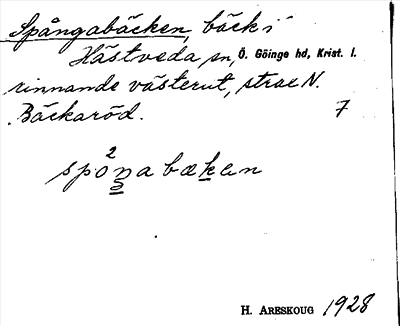 Spångabäcken, bäck i
Hästveda sn, Ö. Göinge hd, Krist. l.
rinnande västerut, strax N.
Bäckaröd. 7
spo²ŋabæken
H. ARESKOUG 1928